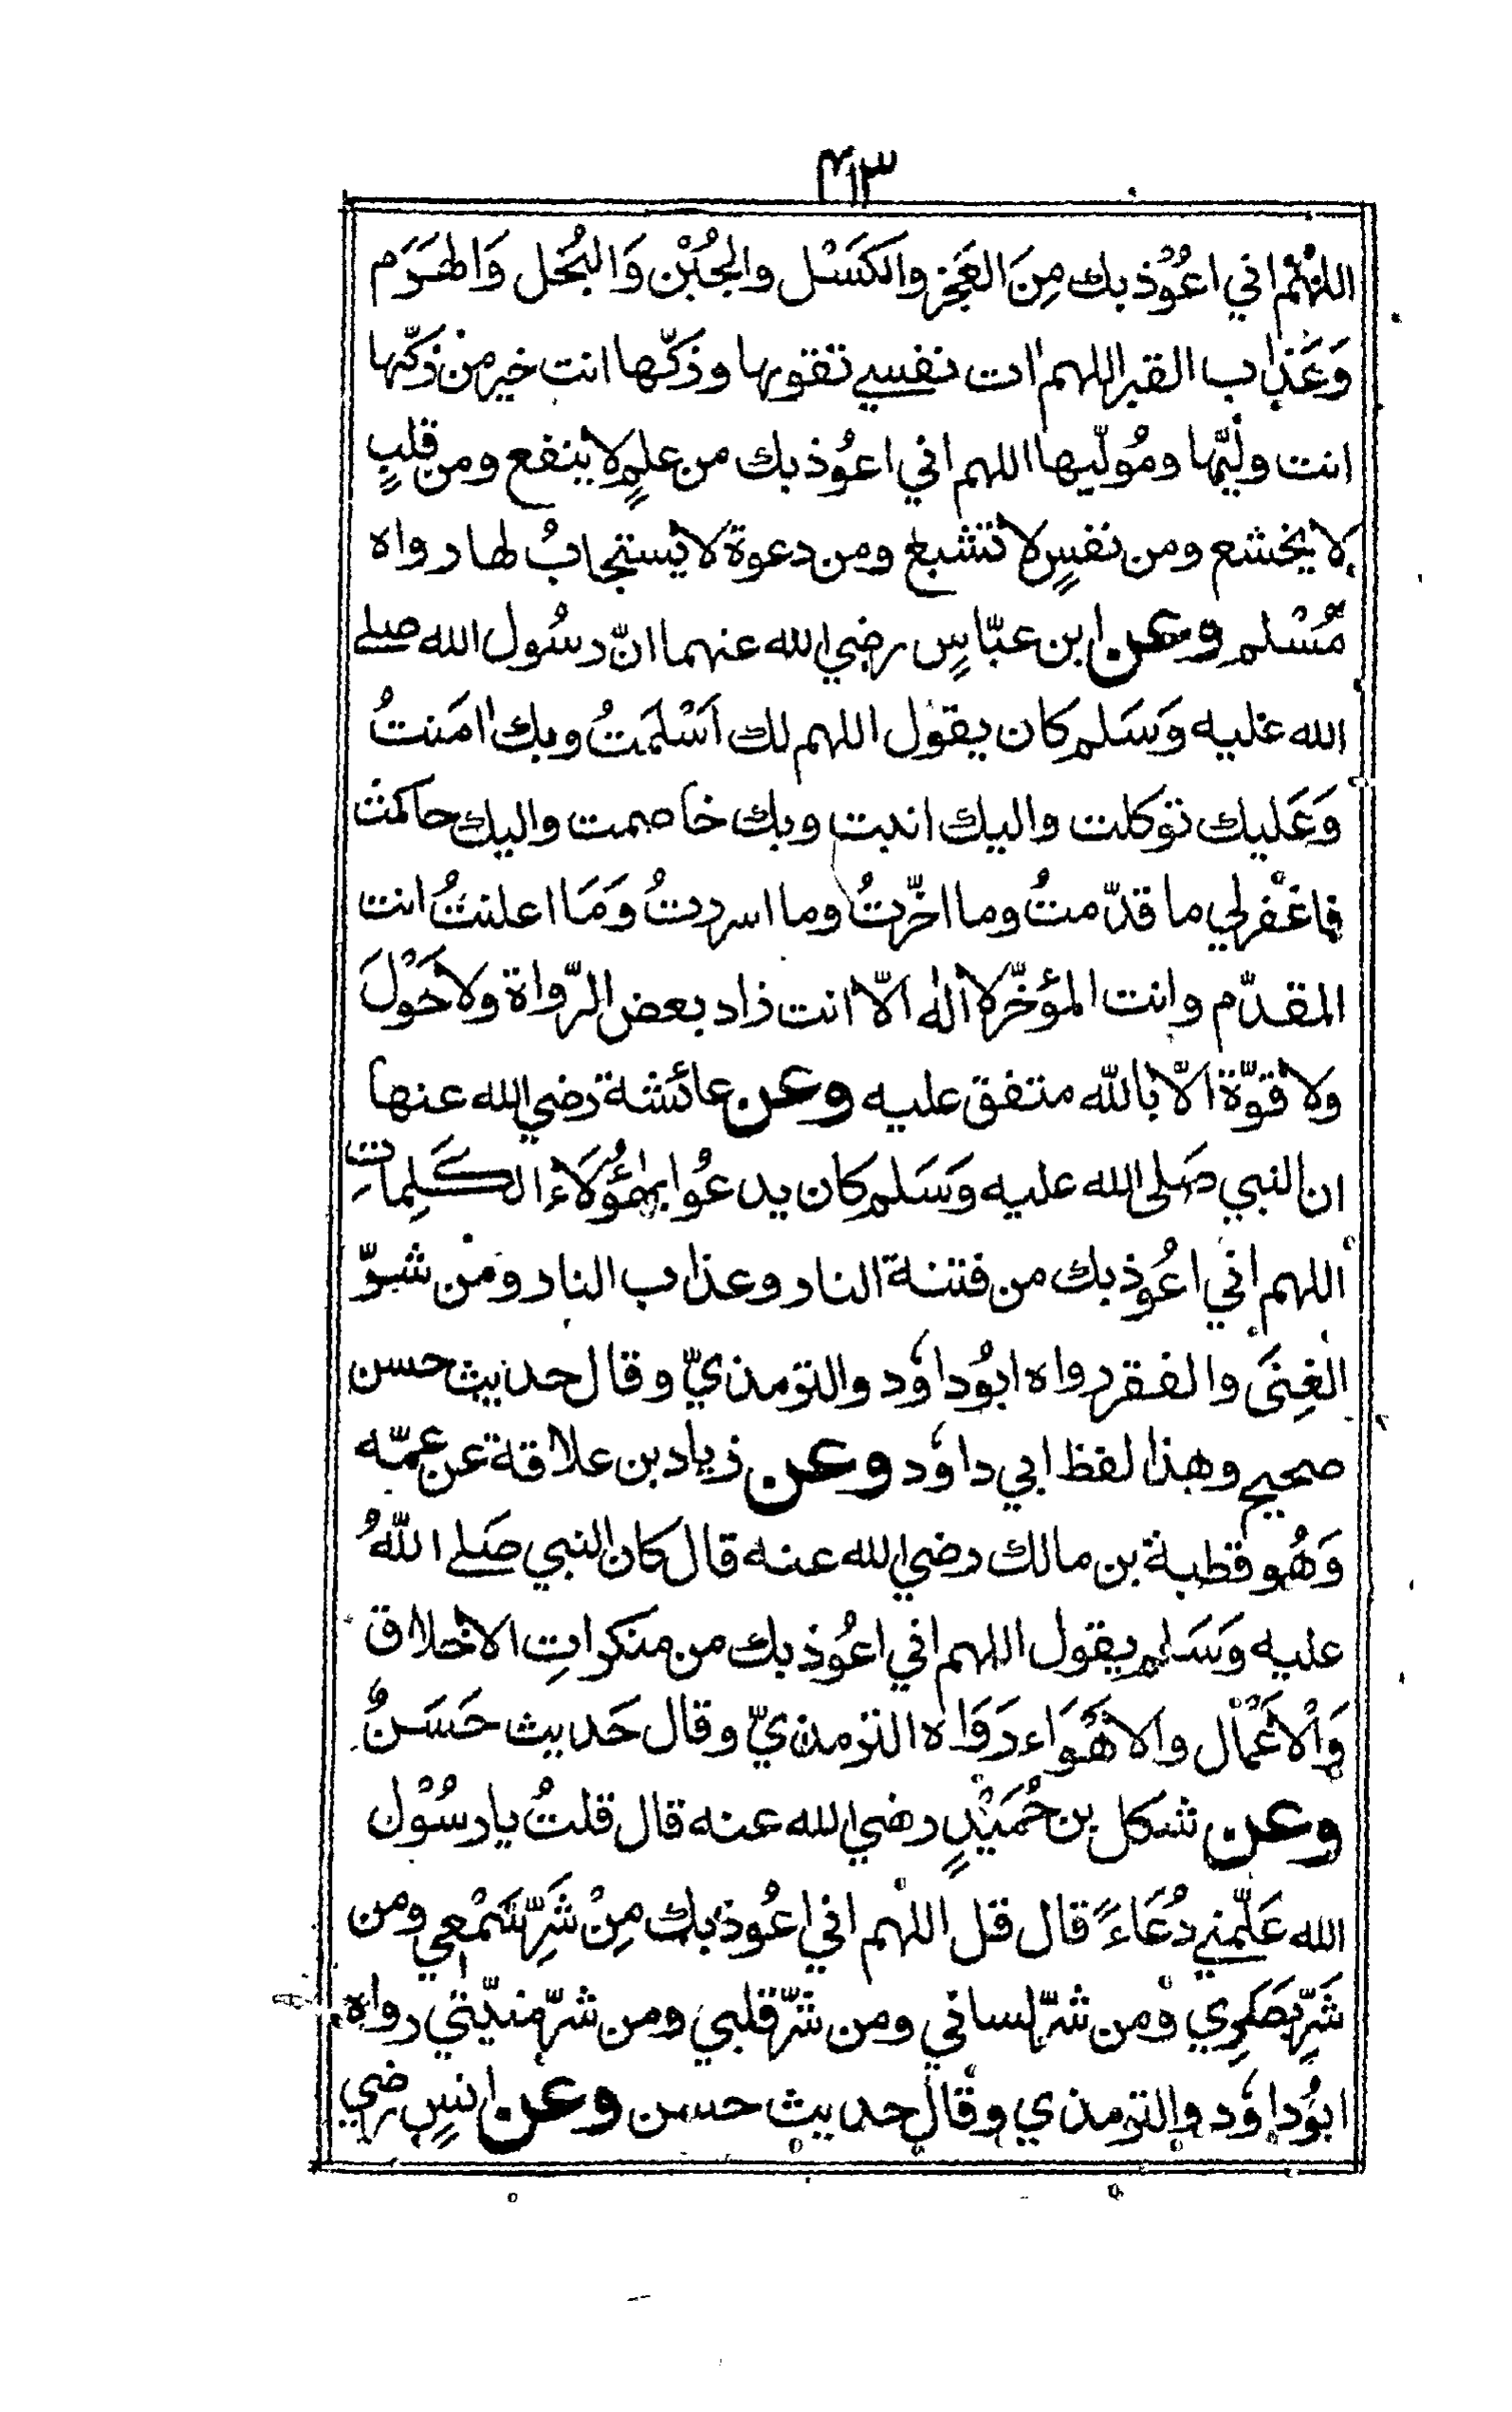 ٤١٣
اللهُمّ اني اعُوْذ بك مِنَ العَجْز والكَسَل والجُبْن وَالبُخل وَالهَرَم
وَعَذاب القبر اللهم اٰت نفسي تقوىها وزكّها انت خير من زكّها
انت وليّها ومُولّيها اللهم اني اعُوذ بك من علمٍ لا ينفع ومن قلبٍ
لا يخشع ومن نفسٍ لا تشبع ومن دعوة لا يستجابُ لها رواه
مُسْلم وعن ابن عبّاسٍ رضي الله عنهما انّ رسُول الله صلى
الله عليه وَسَلم كان يقول اللهم لك اَسْلَمتُ وبك اٰمَنتُ
وَعَليك توكلت واليك انبت وبك خاصمت واليك حاكمت
فاغْفر لي ما قدّمتُ وما اخّرتُ وما اسررتُ وَمَا اعلنتُ انت
المقدّم وانت المؤخّر لا اله الّا انت زاد بعض الرّواة ولا حَوْلَ
ولا قوّة الّا باللّه متفق عليه وعن عائشة رضي الله عنها
ان النبي صَلى الله عليه وَسَلم كان يدعُوا بهٰؤُلَاء الكَلِماتِ
اللهم اني اعُوذ بك من فتنة النار وعذاب النار ومن شرّ
الغِنَى والفقر رواه ابُوداوٗد والترمذيّ وقال حديث حسن
صحيح وهذا لفظ ابي داوٗد وعن زياد بن علاقة عن عمّه
وَهُو قطبة بن مالك رضي الله عنه قال كان النبي صَلى اللّهُ
عليه وَسَلم يقول اللهم اني اعُوذ بك من منكراتِ الاخلاق
وَالْاَعْمَال والاَهْوَاء رَوَاه الترمذيّ وقال حَديث حَسَنٌ
وعن شكل بن حُمَيْدٍ رضي الله عنه قال قلتُ يا رسُوْل
الله عَلّمني دُعَاءً قال قل اللهم اني اعُوذ بك مِنْ شَرِّ سَمْعي ومن
شَرِّ بَصَرِي ومن شرّ لساني ومن شرّ قلبي ومن شرّ منيّتي رواه
ابُوداوٗد والترمذي وقال حديث حسن وعن انسٍ رضي